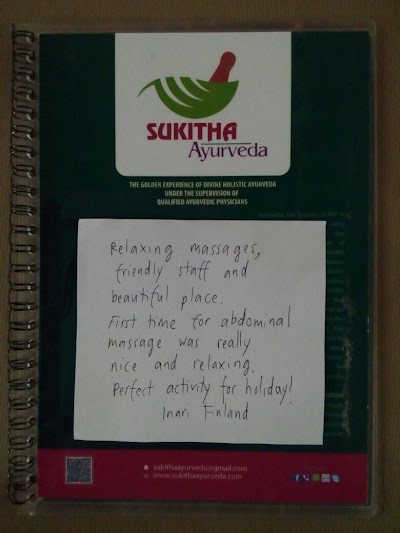 SUKITHA
Ayurveda
THE GOLDEN EXPERIENCE OF DIVINE HOLISTIC AYURVEDA
UNDER THE SUPERVISION OF
QUALIFIED AYURVEDIC PHYSICIANS
Relaxing massages,
friendly staff and
beautiful place.
First time for abdominal
massage was really
nice and relaxing.
Perfect activity for holiday!
Inari Finland
sukithaayurveda@gmail.com
www.sukithaayurveda.com